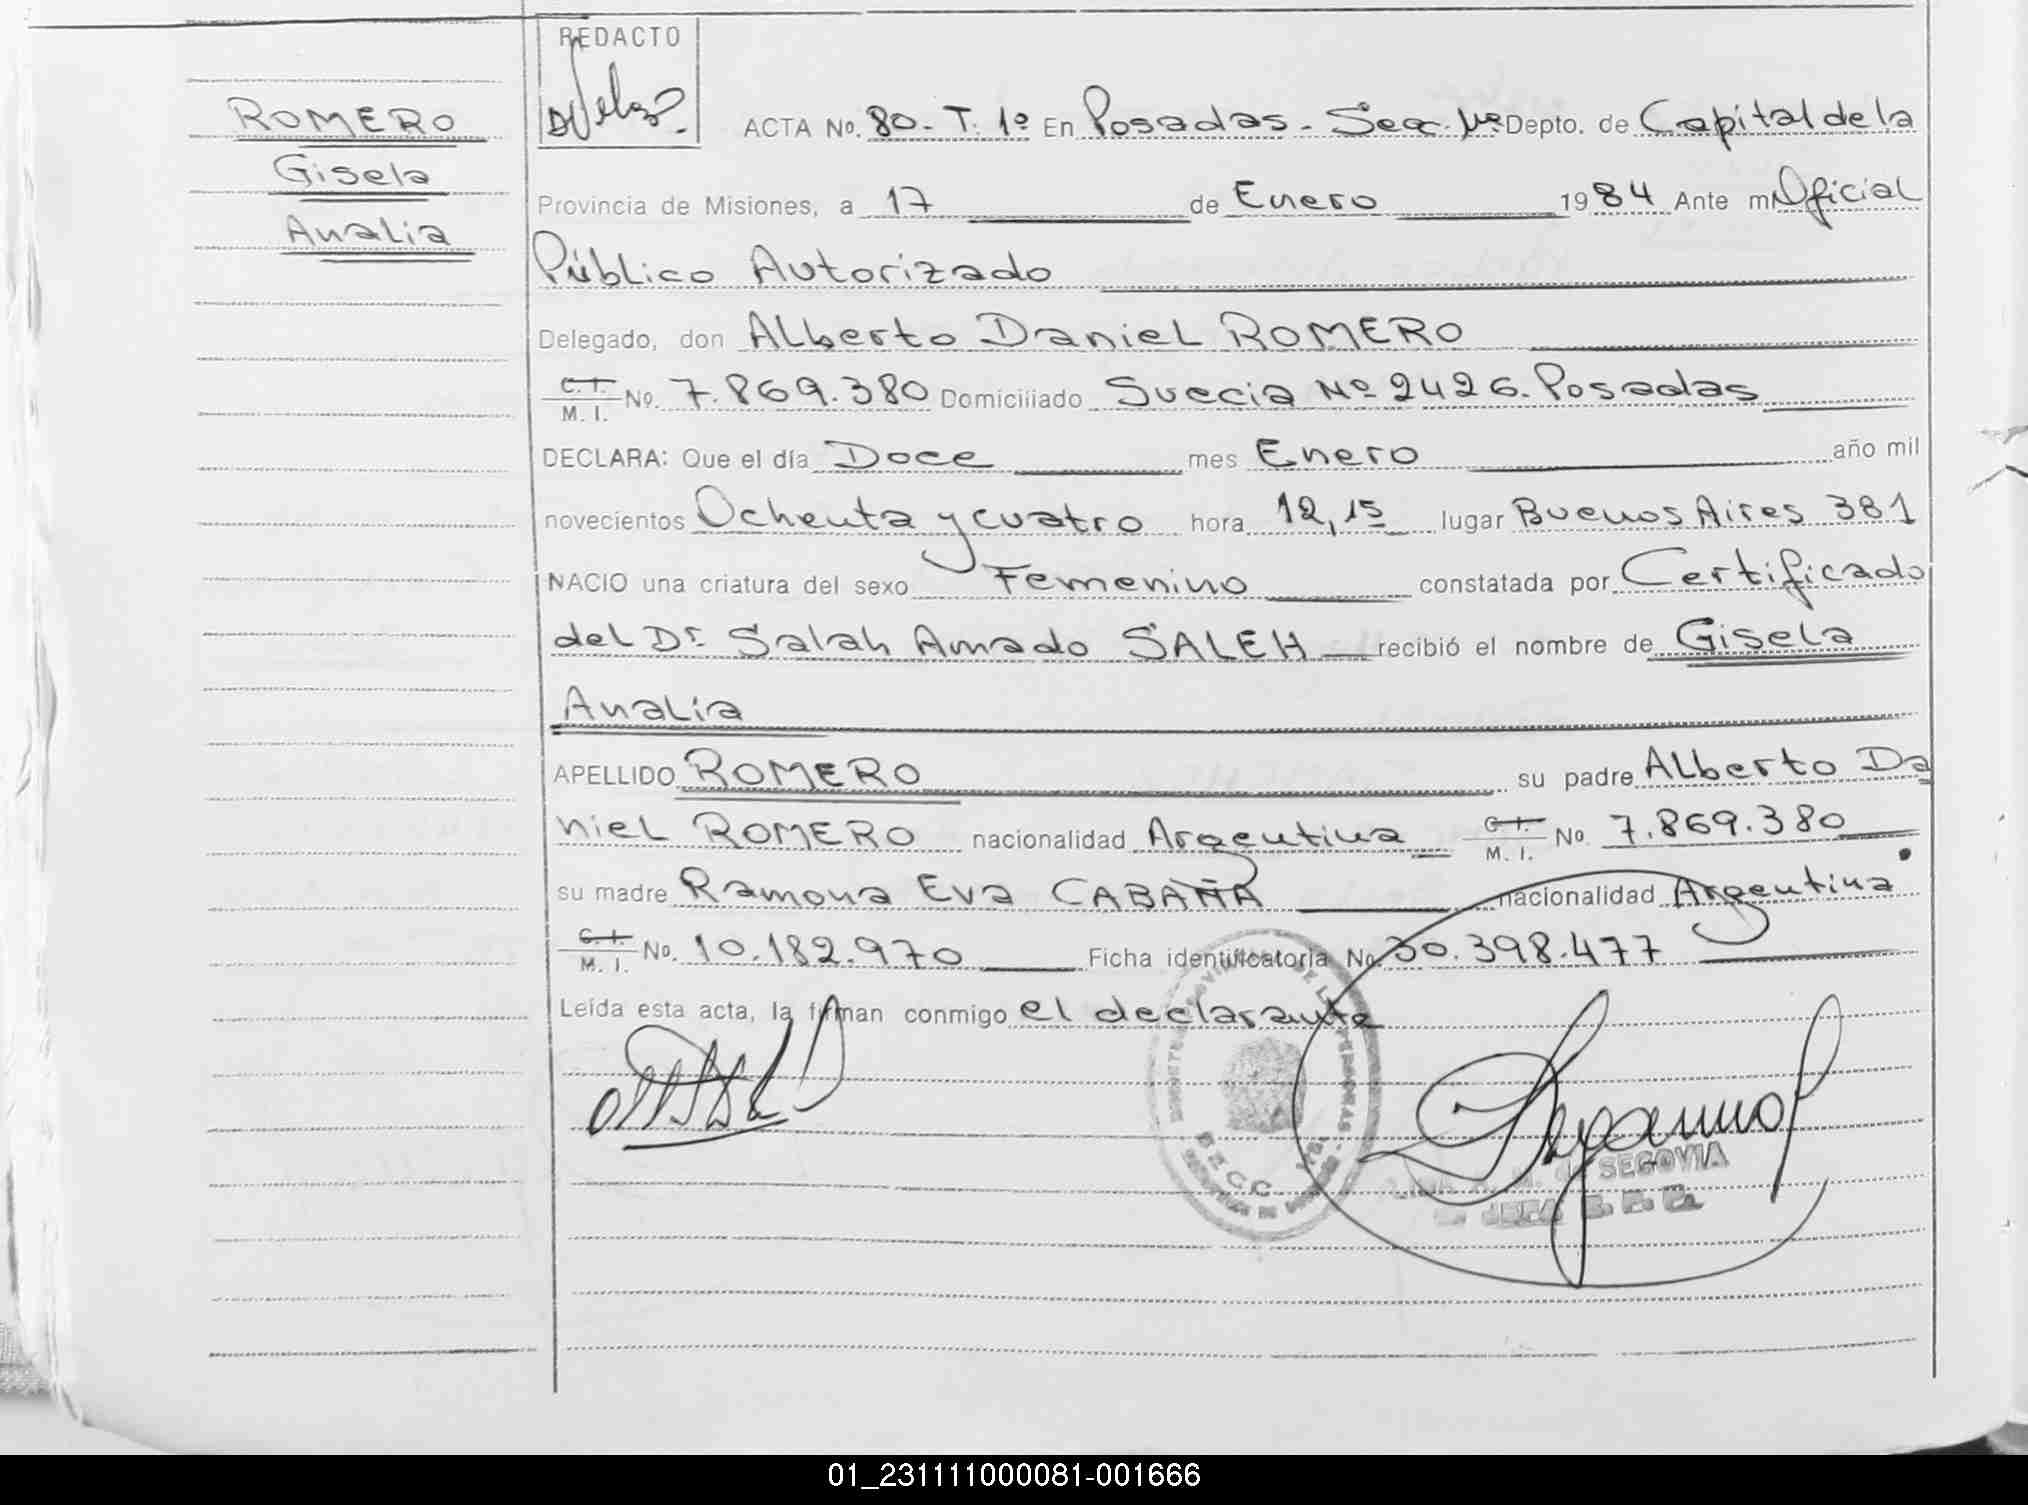 REDACTO
ROMERO
Gisela
Analia
ACTA No. 80- T. 1º En Posadas - Secc. 1ª Depto. de Capital de la
Provincia de Misiones, a 17 de Enero 1984 Ante mi Oficial
Público Autorizado
Delegado, don Alberto Daniel ROMERO
C. I. / M. I. No. 7.869.380 Domiciliado Suecia Nº 2426. Posadas
DECLARA: Que el día Doce mes Enero año mil
novecientos Ochenta y cuatro hora 12,15 lugar Buenos Aires 381
NACIO una criatura del sexo Femenino constatada por Certificado
del Dr. Salah Amado SALEH recibió el nombre de Gisela
Analía
APELLIDO ROMERO su padre Alberto Da
niel ROMERO nacionalidad Argentina C. I. / M. I. No. 7.869.380
su madre Ramona Eva CABAÑA nacionalidad Argentina
C. I. / M. I. No. 10.182.970 Ficha identificatoria No. 30.398.477
Leída esta acta, la firman conmigo el declarante
SEGOVIA
JEFA
01_231111000081-001666